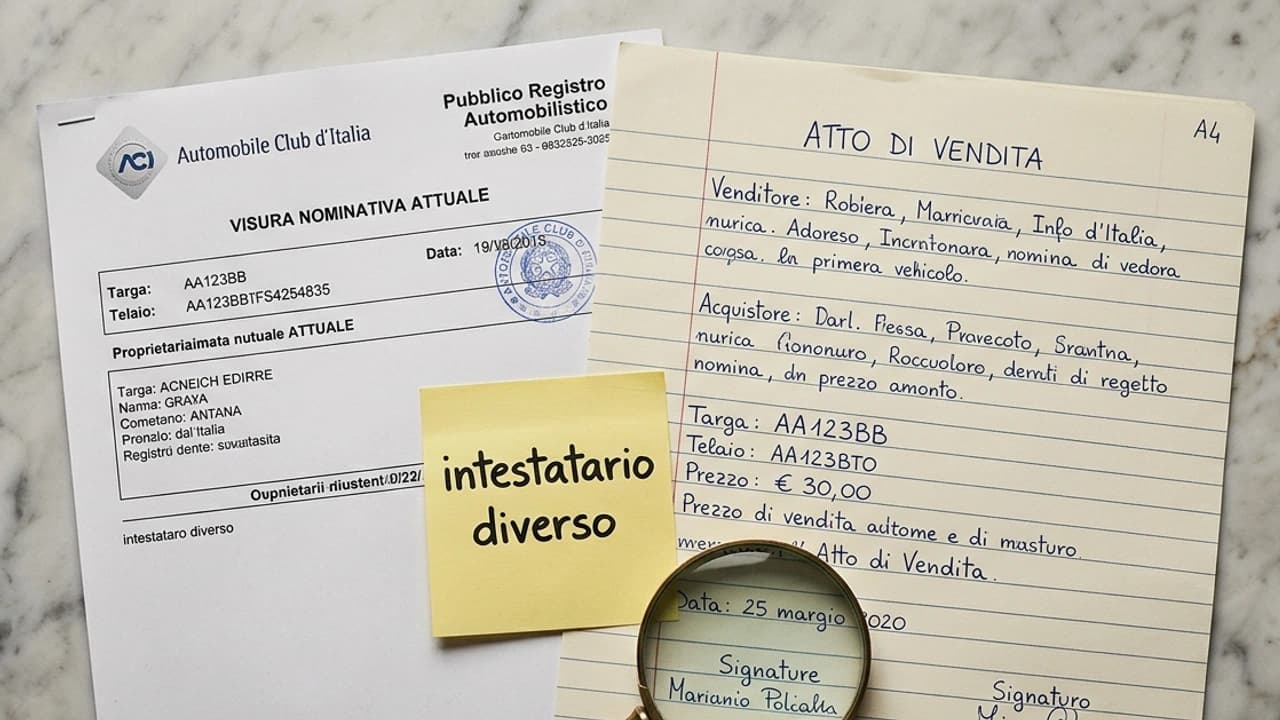 ACI Automobile Club d'Italia
Pubblico Registro
Automobilistico
VISURA NOMINATIVA ATTUALE
Data:
Targa: AA123BB
Telaio: AA123BBTFS4254835
Proprietariaimata nutuale ATTUALE
Targa: ACNEICH EDIRRE
Nama: GRAYA
Cometano: ANTANA
Prenalo: dal'Italia
Registrú dente:
intestataro diverso
intestatario
diverso
A4
ATTO DI VENDITA
Venditore: Robiera, Marricvaia, Info d'Italia,
nurica. Adoreso, Incrntonara, nomina di vedora
primera vehicolo.
Acquistore: Darl. Fessa, Pravecoto, Srantna,
nurica Roccuoloro, demti di regetto
nomina, dn prezzo amonto.
Targa: AA123BB
Telaio: AA123BTO
Prezzo: € 30,00
Prezzo di vendita autome e di masturo.
Atto di Vendita.
Data: 25 margio 2020
Signature
Marianio
Signaturo